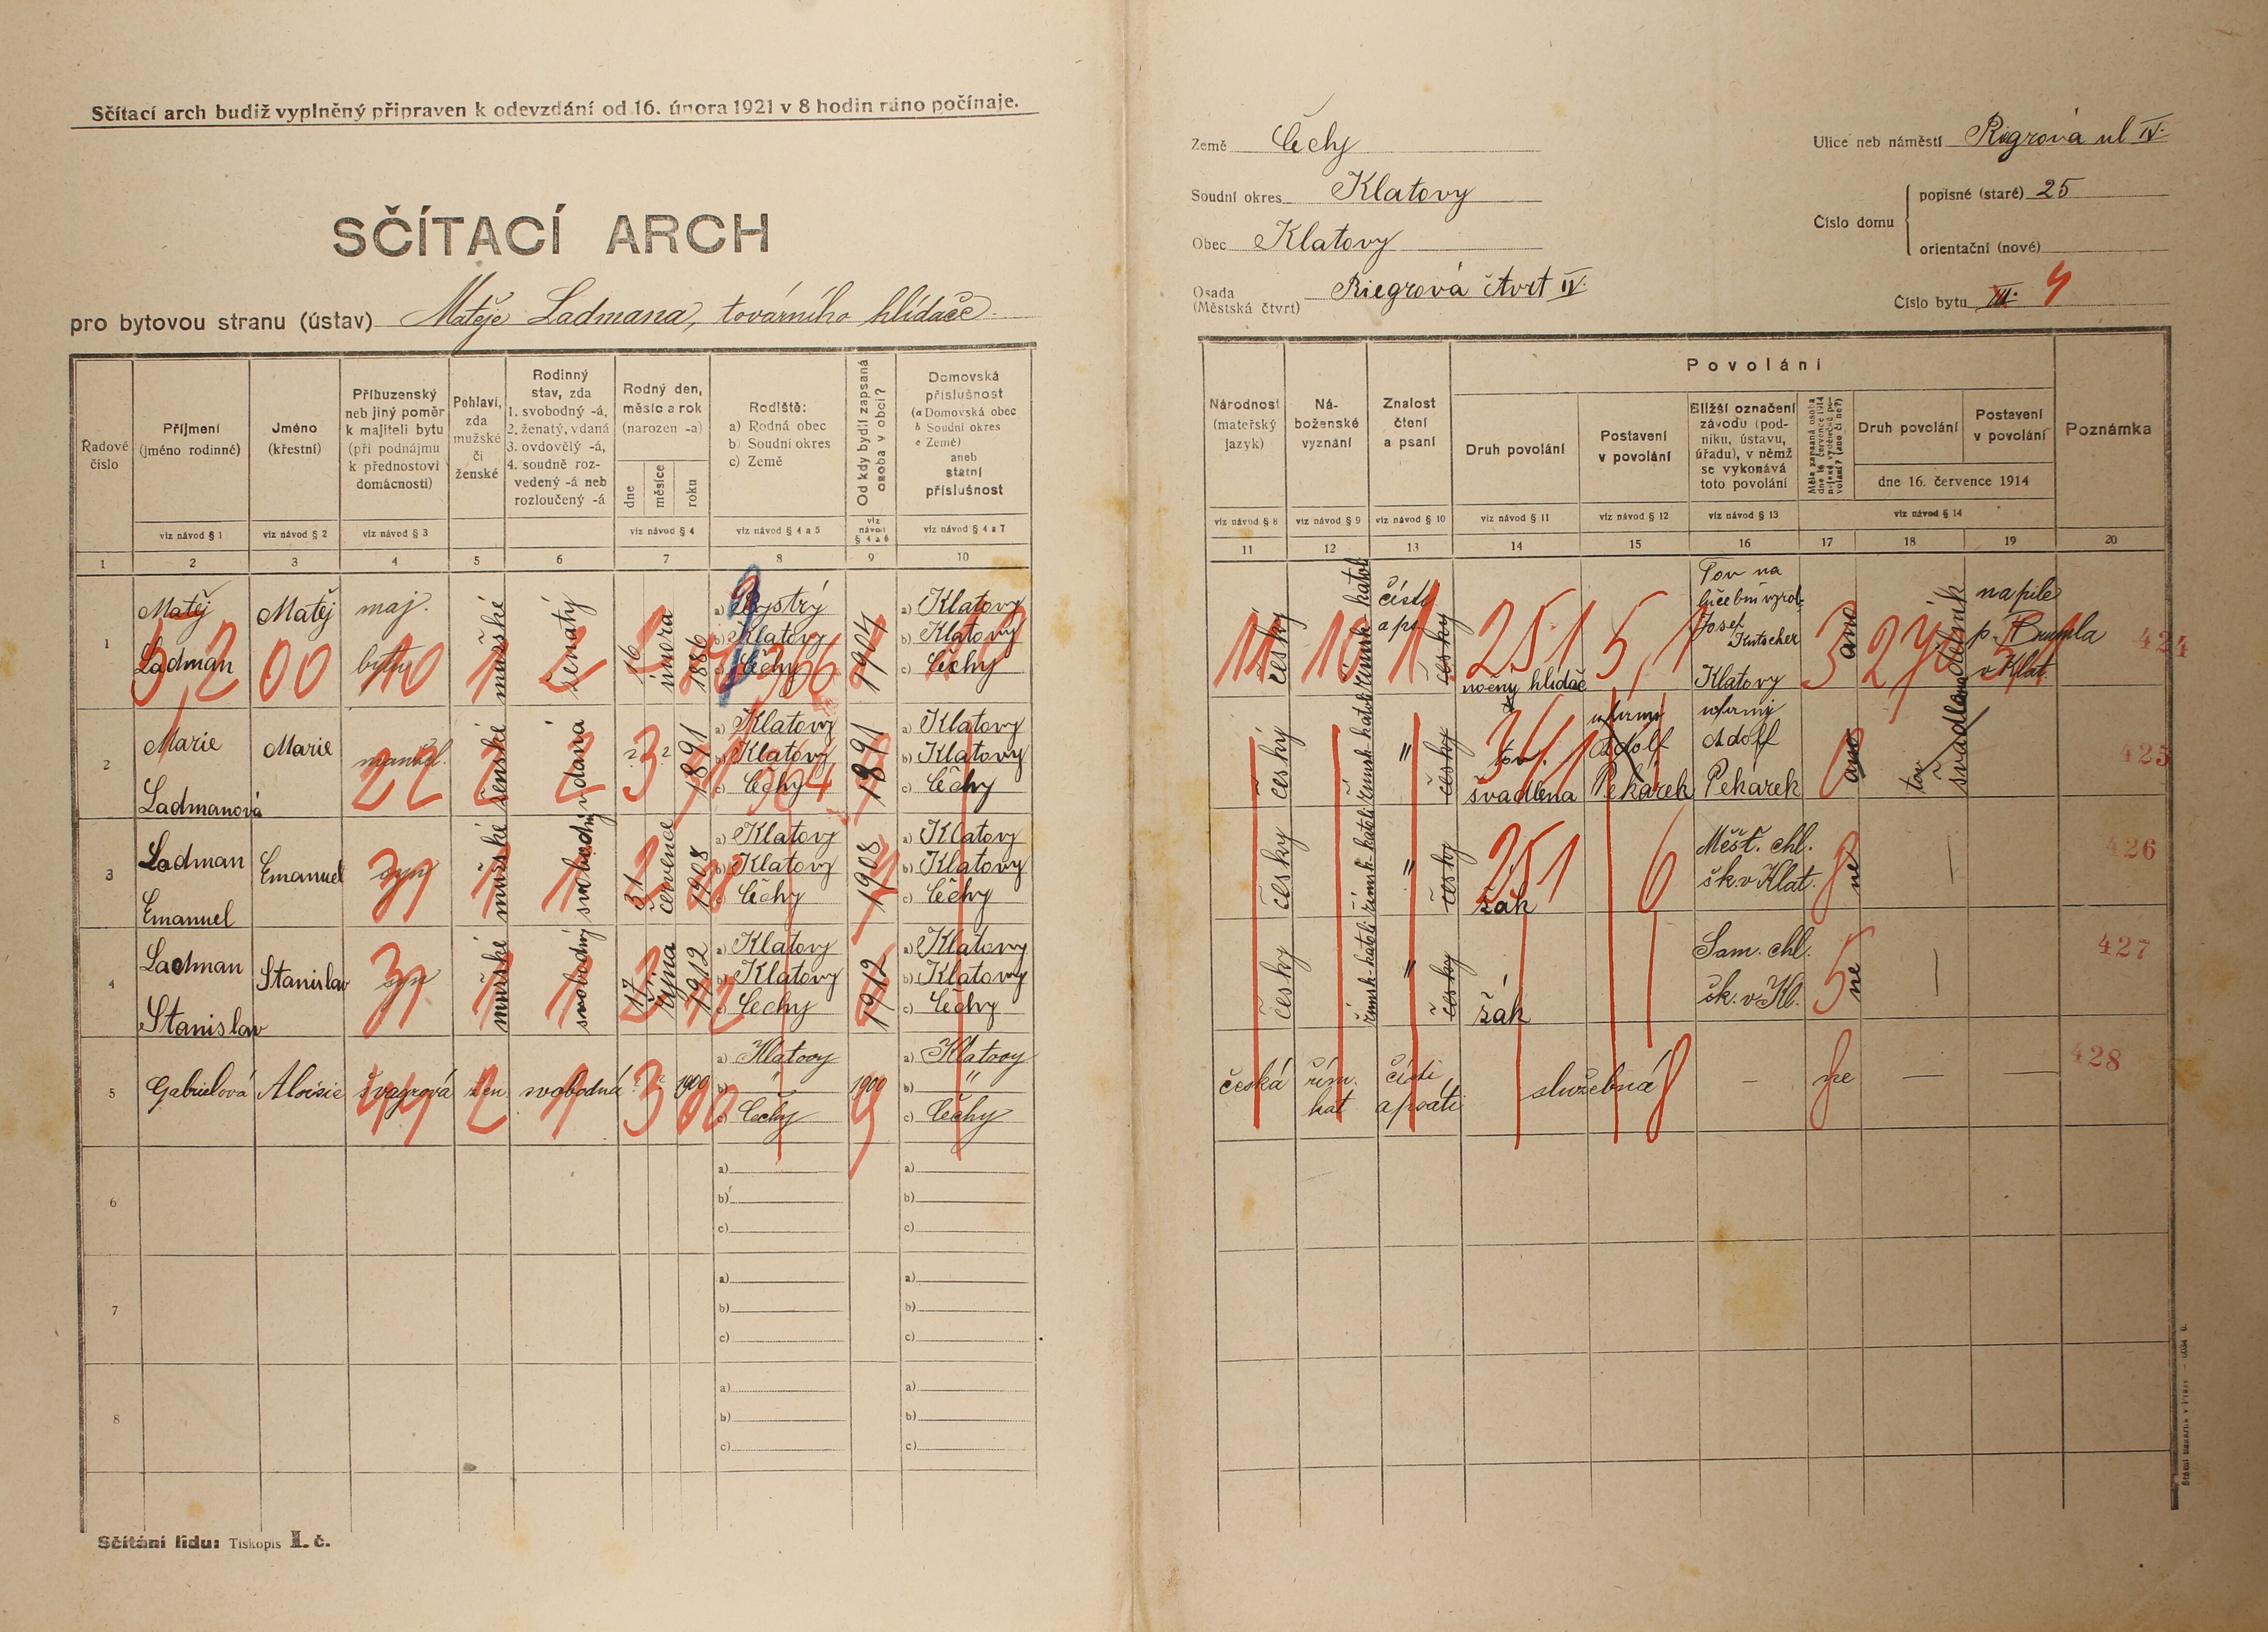 Sčítací arch budiž vyplněný připraven k odevzdání od 16. února 1921 v 8 hodin ráno počínaje.
SČÍTACÍ ARCH
pro bytovou stranu (ústav) Matěje Ladmana, továrního hlídače.
Země Čechy
Soudní okres Klatovy
Obec Klatovy
Osada (Městská čtvrt) Riegrová čtvrt IV.
Ulice neb náměstí Riegrova ul IV.
Číslo domu
popisné (staré) 25
orientační (nové)
Číslo bytu VII. 4
Řadové číslo
Příjmení (jméno rodinné)
Jméno (křestní)
Příbuzenský neb jiný poměr k majiteli bytu (při podnájmu k přednostovi domácnosti)
Pohlaví, zda mužské či ženské
Rodinný stav, zda 1. svobodný -á, 2. ženatý, vdaná 3. ovdovělý -á, 4. soudně rozvedený -á neb rozloučený -á
Rodný den, měsíc a rok (narozen -a)
dne měsíce roku
Rodiště: a) Rodná obec b) Soudní okres c) Země
Od kdy bydlí zapsaná osoba v obci?
Domovská příslušnost (a Domovská obec b Soudní okres c Země) aneb státní příslušnost
Národnost (mateřský jazyk)
Náboženské vyznání
Znalost čtení a psaní
Povolání
Druh povolání
Postavení v povolání
Bližší označení závodu (podniku, ústavu, úřadu), v němž se vykonává toto povolání
Druh povolání
Postavení v povolání
dne 16. července 1914
Poznámka
viz návod § 1 viz návod § 2 viz návod § 3 viz návod § 4 viz návod § 4 a 5 viz návod § 4 a 6 viz návod § 4 a 7
viz návod § 8 viz návod § 9 viz návod § 10 viz návod § 11 viz návod § 12 viz návod § 13 viz návod § 14
1 2 3 4 5 6 7 8 9 10
11 12 13 14 15 16 17 18 19 20
1 Matěj Ladman Matěj maj. bytu mužské ženatý 16 února 1886
a) Bystrý b) Klatovy c) Čechy
1904
a) Klatovy b) Klatovy c) Čechy
český římsk-katol číst a ps. česky
noční hlídač
Tov na lučební výrob. Josef Kutscher Klatovy
ano dělník
na pile p. v Klat.
424
2 Marie Ladmanová Marie manžel. ženské vdaná ? ? 1891
a) Klatovy b) Klatovy c) Čechy
1891
a) Klatovy b) Klatovy c) Čechy
český římsk-katol " česky
tov. švadlena
u firmy Adolf Pekárek
u firmy Adolf Pekárek
ano
tov švadlena
425
3 Ladman Emanuel Emanuel syn mužské svobodný 31 července 1908
a) Klatovy b) Klatovy c) Čechy
1908
a) Klatovy b) Klatovy c) Čechy
český římsk-katol " česky
žák
Měšť. chl. šk. v Klat.
ne
426
4 Ladman Stanislav Stanislav syn mužské svobodný 17 října 1912
a) Klatovy b) Klatovy c) Čechy
1912
a) Klatovy b) Klatovy c) Čechy
český římsk-katol " česky
žák
Sam. chl. šk. v Kl.
ne
427
5 Gabrielová Aloisie švagrová žen. svobodná ? ? 1900
a) Klatovy b) " c) Čechy
1900
a) Klatovy b) " c) Čechy
česká řím. kat čísti a psáti
služebná
— ne — —
428
6 a) b) c) a) b) c)
7 a) b) c) a) b) c)
8 a) b) c) a) b) c)
Sčítání lidu: Tiskopis I. č.